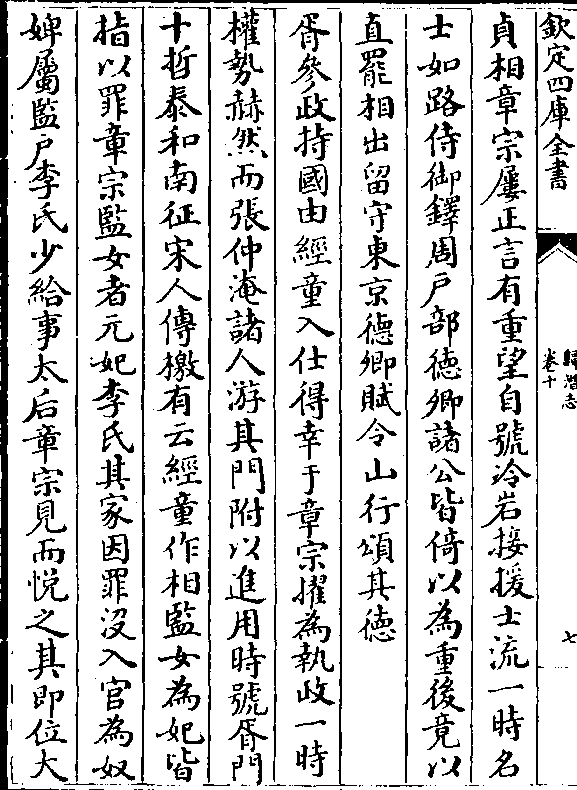 欽定四庫全書
歸潛志
卷十
七
貞相章宗屢正言有重望自號冷岩接援士流一時名
士如路侍御鐸周戶部德卿諸公皆倚以為重後竟以
直罷相出留守東京德卿賦令山行頌其德
胥參政持國由經童入仕得幸于章宗擢為執政一時
權勢赫然而張仲淹諸人游其門附以進用時號胥門
十哲泰和南征宋人傳檄有云經童作相監女為妃皆
指以罪章宗監女者元妃李氏其家因罪沒入官為奴
婢屬監戶李氏少給事太后章宗見而悅之其即位大